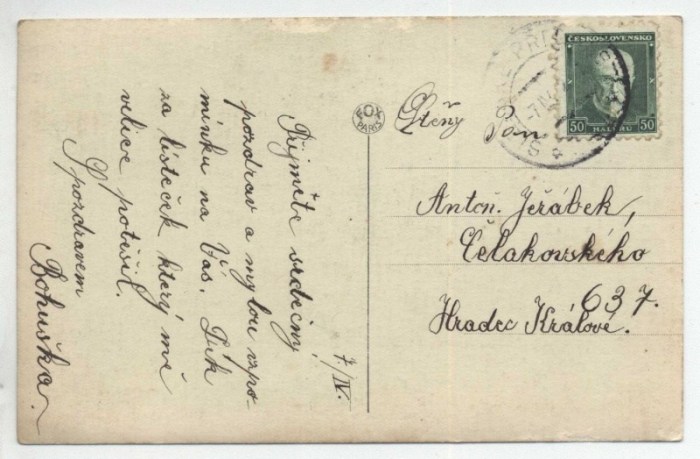 7/IV.
Přijměte srdečný
pozdrav a mylou vzpo-
mínku na Vás. Dík
za lísteček který mě
velice potěšil.
S pozdravem
Bohuška.
FOX
PARIS
Ctěný Pan
Antoň. Jeřábek,
Čelakovského
637.
Hradec Králové.
ČESKOSLOVENSKO
50 HALÉŘŮ 50